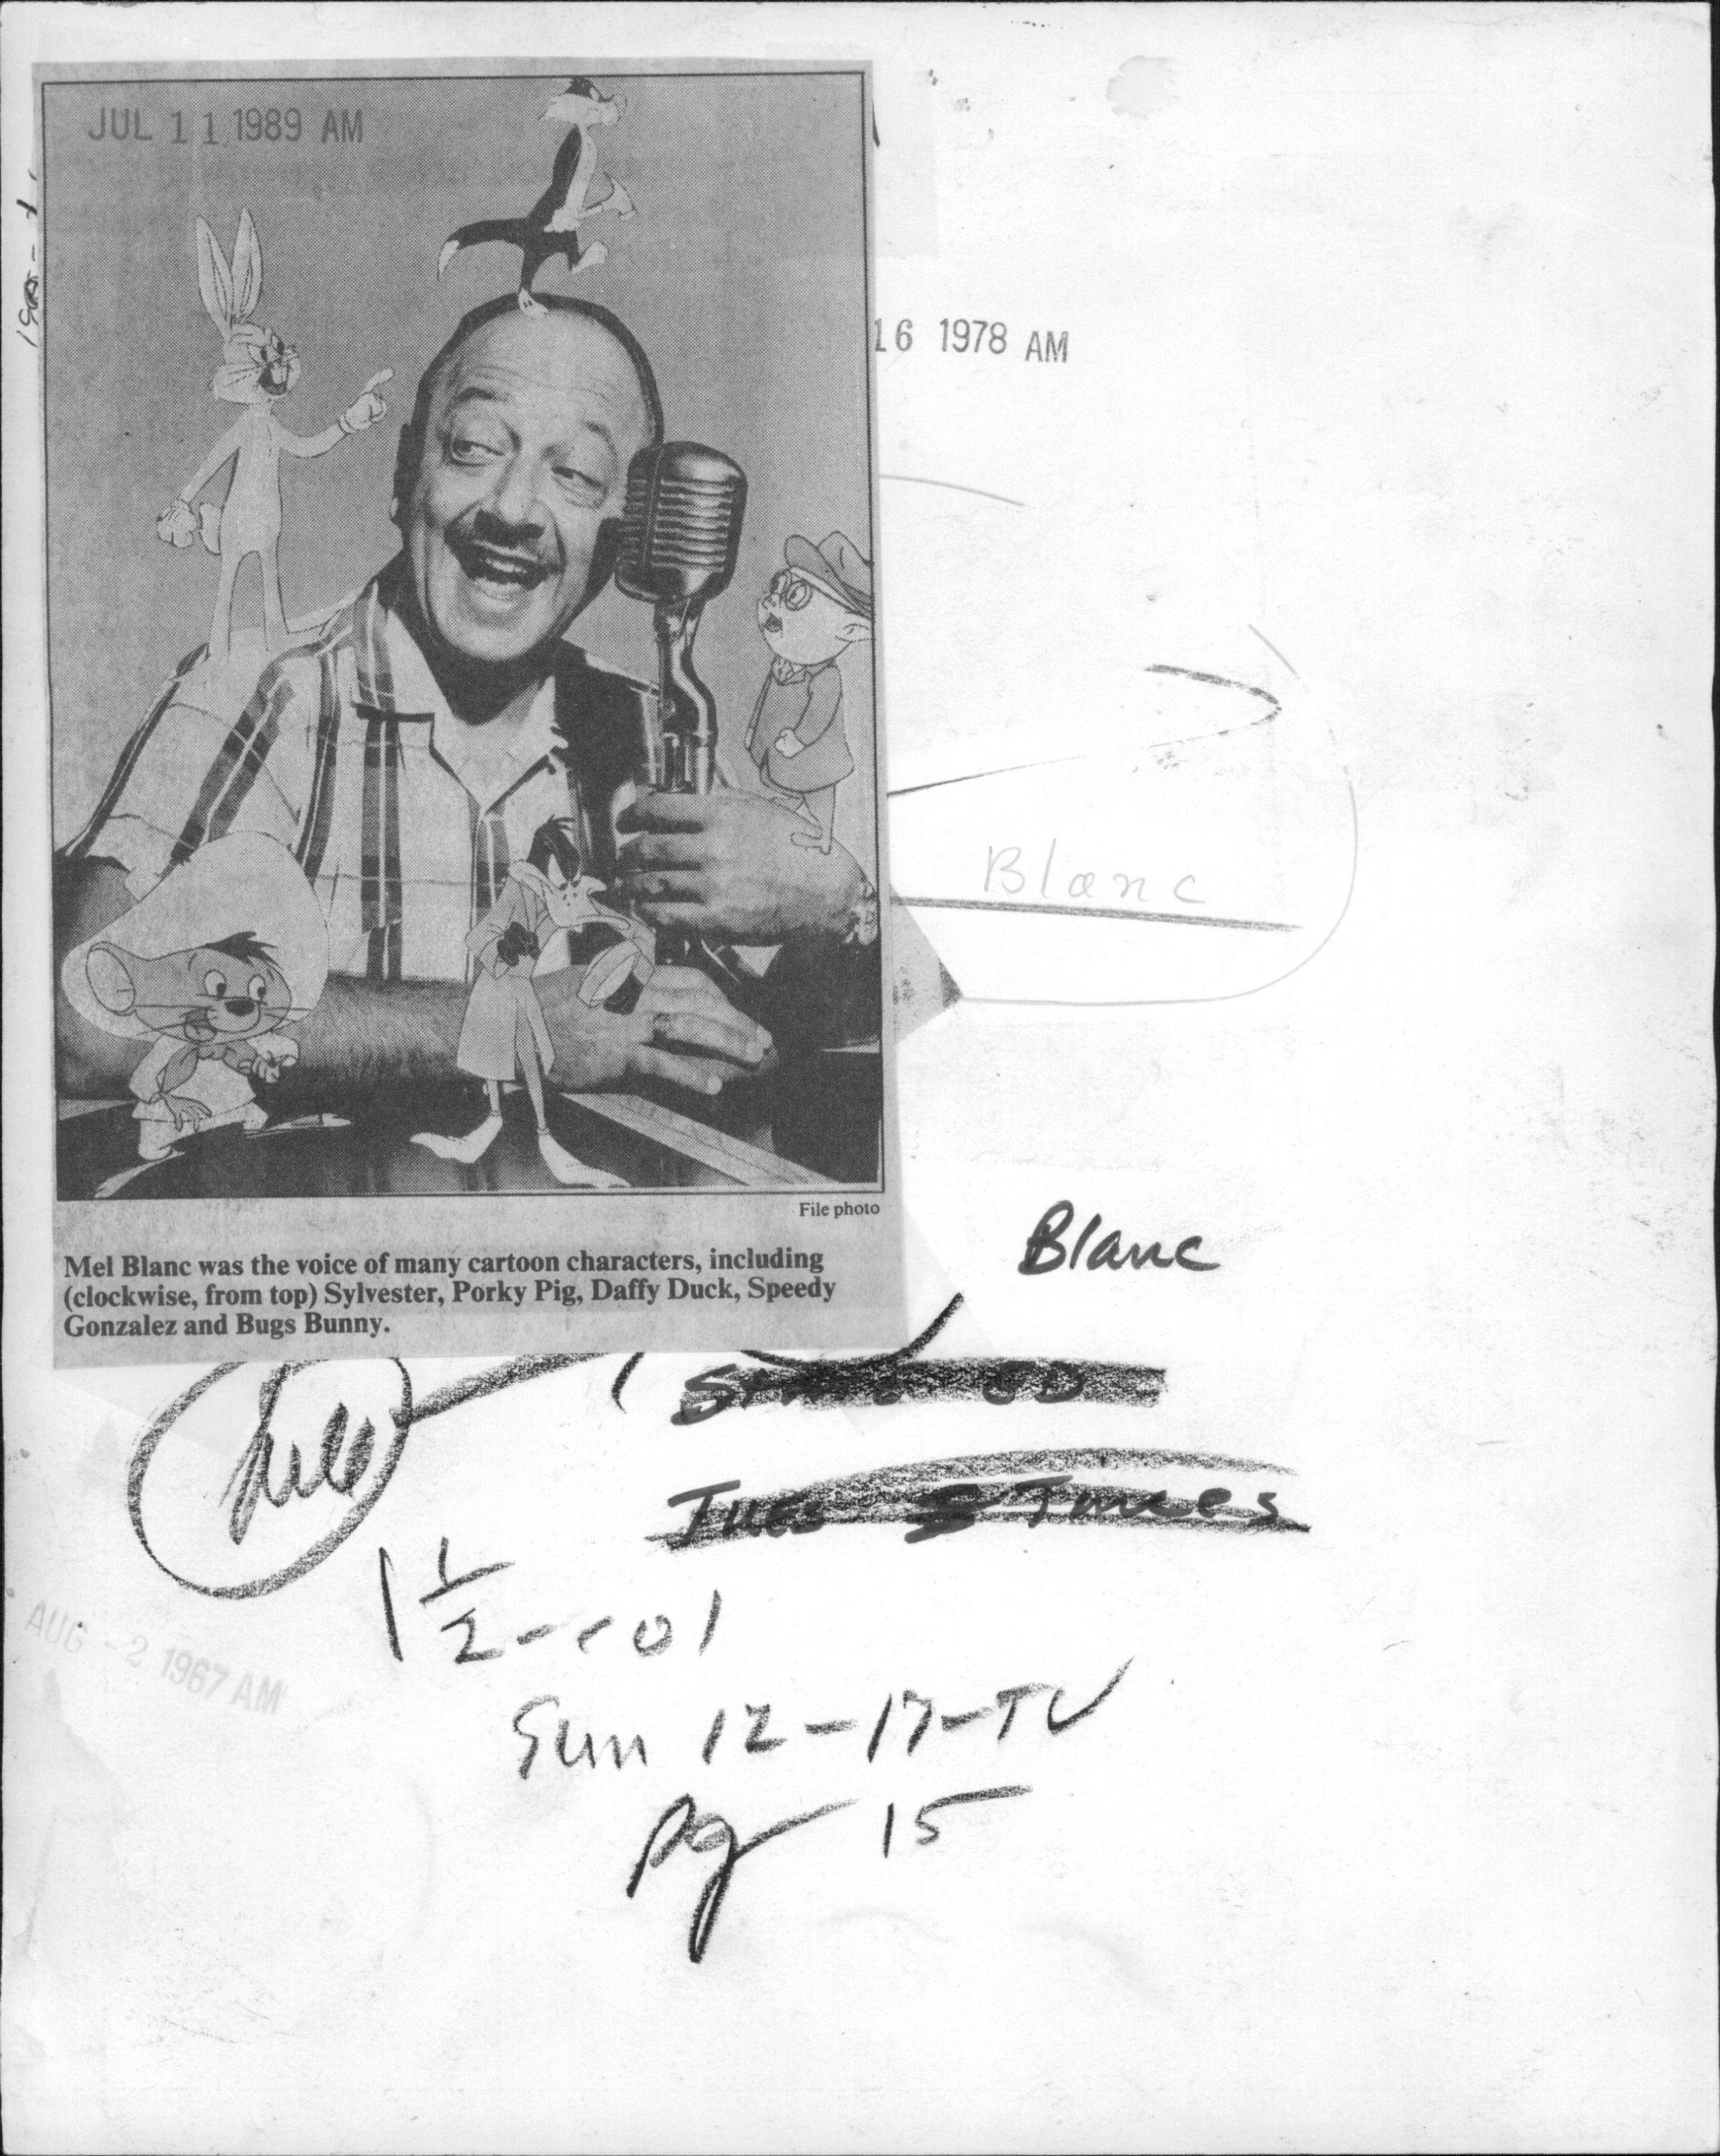 JUL 11 1989 AM
16 1978 AM
Blanc
File photo
Blanc
Mel Blanc was the voice of many cartoon characters, including
(clockwise, from top) Sylvester, Porky Pig, Daffy Duck, Speedy
Gonzalez and Bugs Bunny.
1 1/2 - col
AUG - 2 1967 AM
Sun 12-17-TV
pg 15